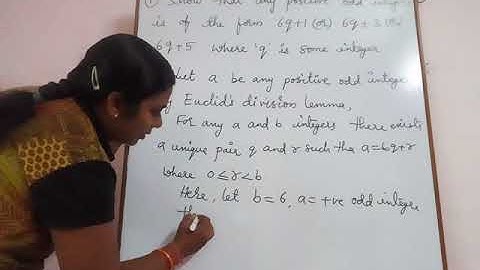 ① Show that any positive odd integer
is of the form 6q+1 (or) 6q+3 (or)
6q+5 where 'q' is some integer
Let a be any positive odd integer
Euclid's division lemma,
For any a and b integers there exists
a unique pair q and r such tha a=bq+r
where 0≤r<b
Here, let b=6, a=+ve odd integer
th